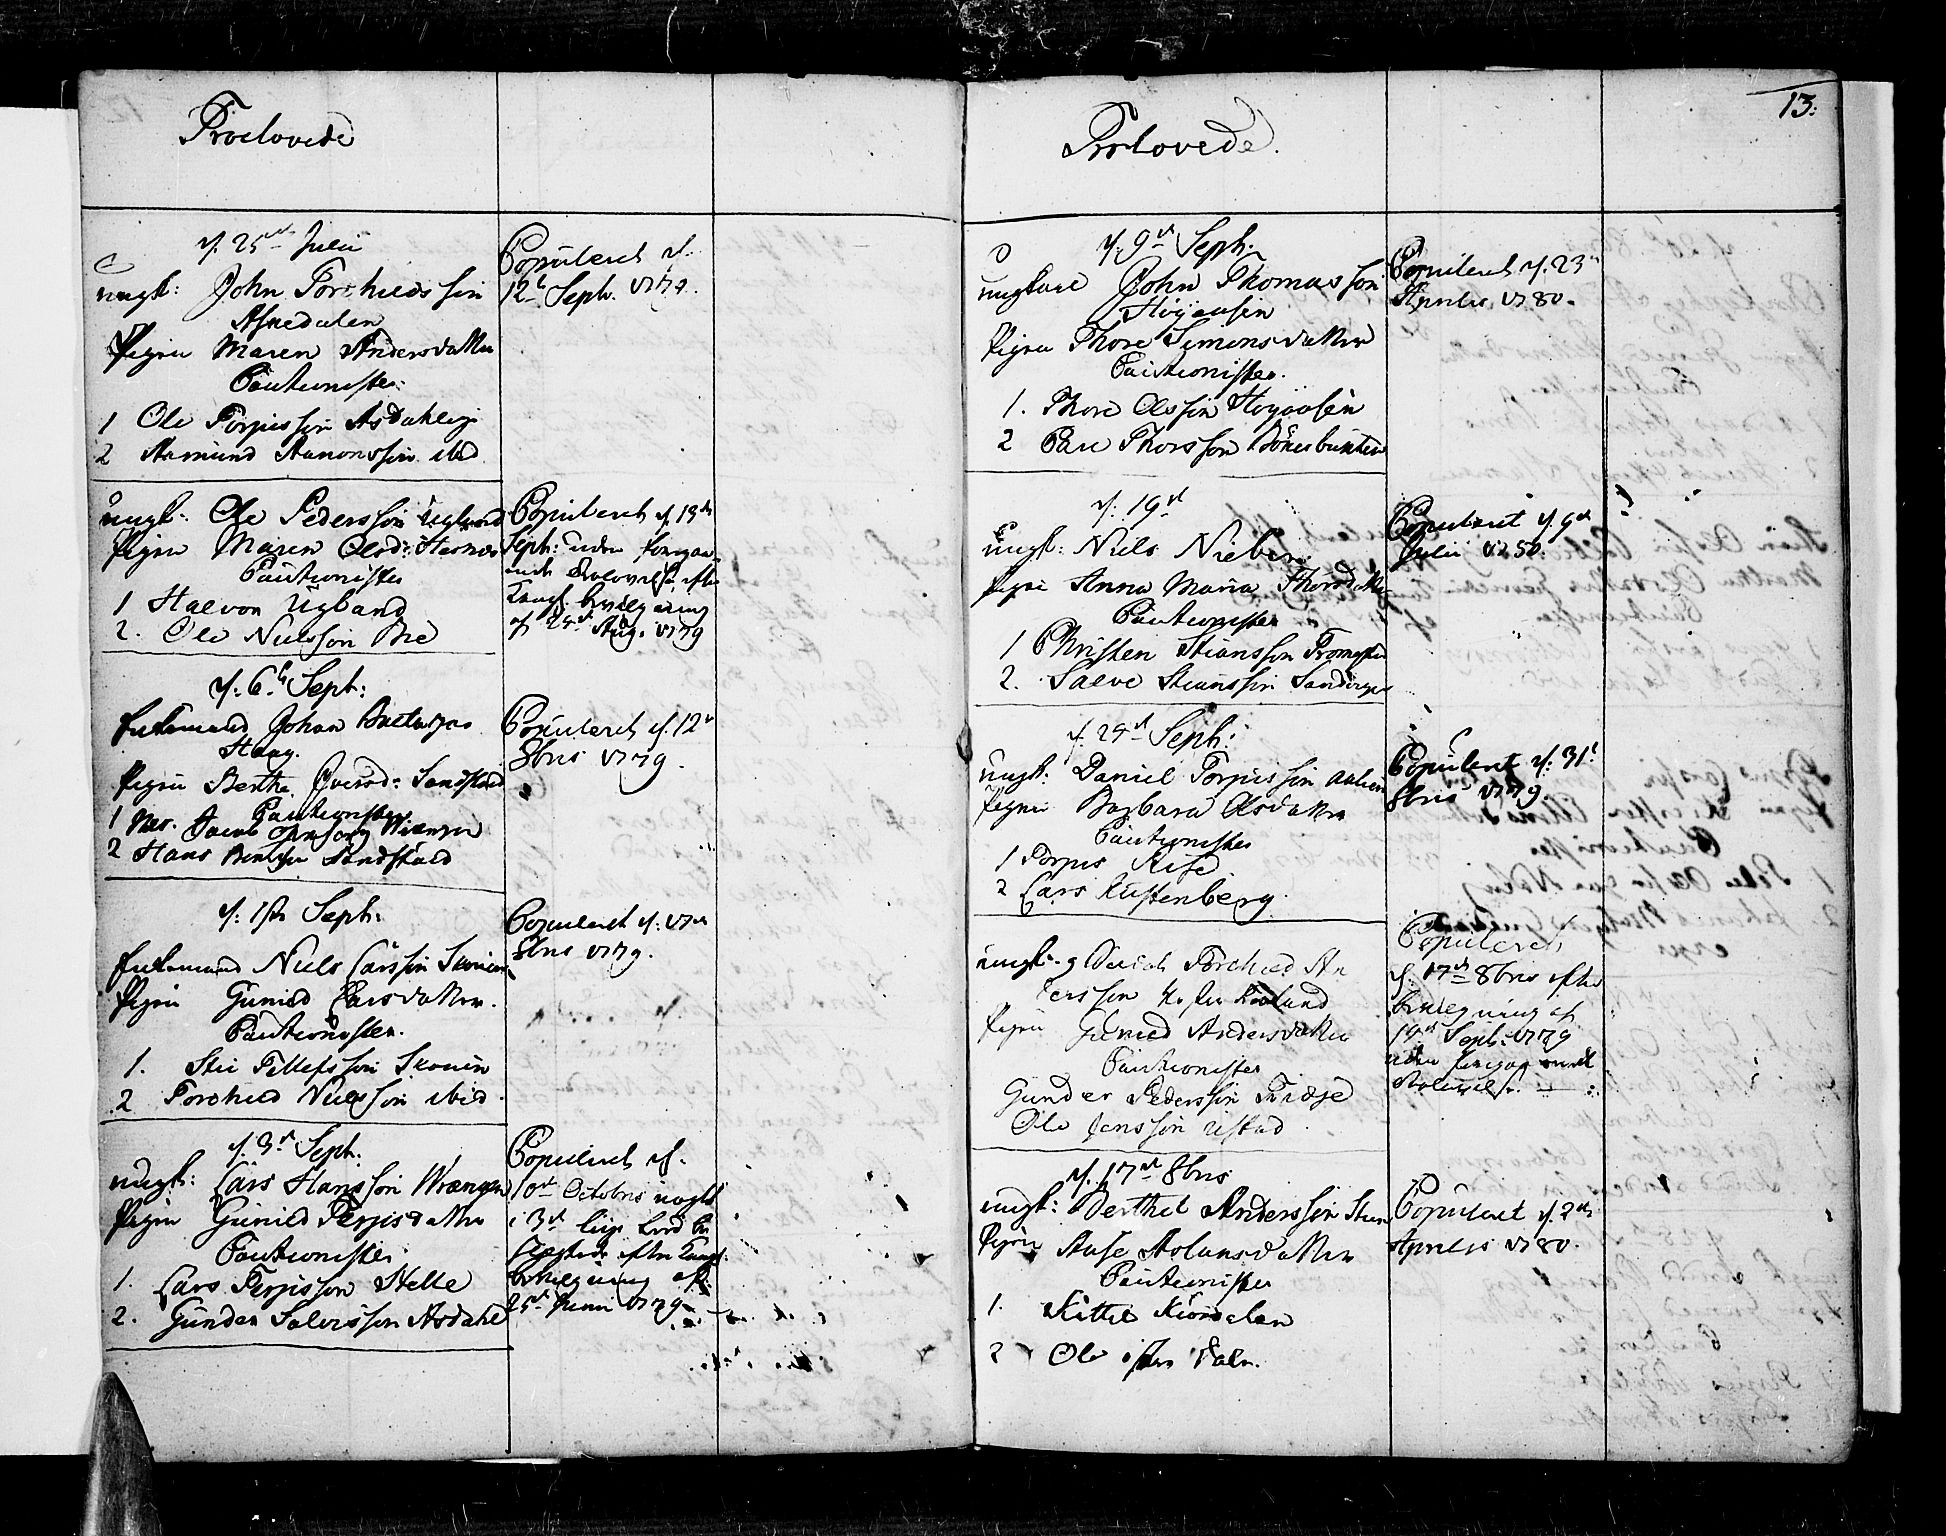 Troelovede
d. 25de Julii
ungk: John Torchieds søn
Asnedalen
Pigen Maren Andersdatter
Cautionister:
1 Ole Torjussøn Asdahleje
2 Aamund Aamondssøn ibid
Copuleret d.
12te Septr. 1779.
ungk: Ole Pederssøn Ugland
Pigen Maren Olsd: Stesnes
Cautionister
1 Halvor Ugland
2. Ole Nielssøn Bie
Copuleret d. 13de
Sept: uden foregaa-
ende Trolovelse efter
Kongl. bevilgning
af 24de Aug. 1779
d. 6te Sept:
Enkemand Johan Baltazar
Haag.
Pigen Berthe Iversd: Sandstød
Cautionister
1 Mr. Jacob Wrænger
2 Hans Bentsen Sandstød
Copuleret d. 12te
8bris 1779.
d. Sept:
Enkemand Niels Larssøn Skouen
Pigen Gunild Larsdatter.
Cautionister.
1. Stie Tellefssøn Skouen
2 Torchild Nielssøn ibid.
Copuleret d. 17de
8bris 1779.
d. 3de Sept:
ungk: Lars Hanssøn Wrængen
Pigen Gunild Terjisdatter
Cautionister
1. Lars Terjissøn Helle
2. Gunder Salvessøn Asdahl
Copuleret d.
10de Octobris uagtet
i 3de Lige Leed be-
slægtede efter Kongl:
bevilgning af
25de Junii 1779
13:
Trolovede.
d. 9de Sept:
ungkarl John Thomassøn
Høyaasen
Pigen Thore Simonsdatter
Cautionister.
1. Thore Olssøn Høyaasen
2 Part Thorssøn Bönesbunten
Copuleret d. 23de
Aprilis 1780.
d. 19de
ungk: Niels Nieber
Pigen Anna Maria Thorsdatter
Cautionister
1 Christen Stiansson Tromøen
2. Salve Stianssøn Sandvigen
Copuleret d. 9de
Julii 1780.
d. 24de Sept:
ungk: Daniel Torjussøn
Pigen Barbara Olsdatter
Cautionister
1 Torjus Rise
2 Lars Rustenberg.
Copuleret d. 31te
8bris 1779.
ungk. Torchild An
derssøn
Pigen Gunild Andersdatter
Cautionister
Gunder Pederssøn Tvedje
Ole Jenssøn Ristad.
Copuleret
d. 17de 8bris efter
bevilgning af
14de Sept: 1779
uden foregaaende
Trolovelse.
d. 17de 8bris
ungk: Berthel Anderssøn
Pigen Aase Aslansdatter
Cautionister
1. Kittel Kiorrdalen
2 Ole
Copuleret d. 2de
Aprilis 1780.